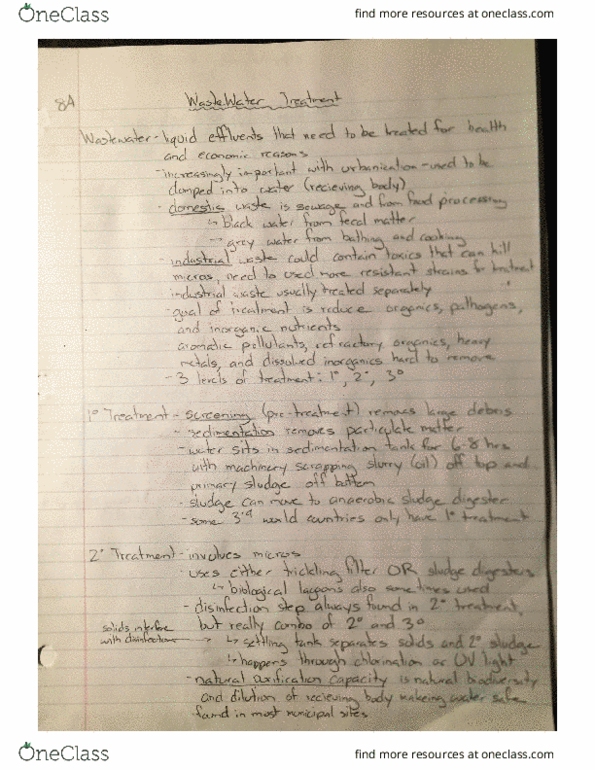 OneClass
find more resources at oneclass.com
8A
WasteWater Treatment
Wastewater - liquid effluents that need to be treated for health
and economic reasons
- increasingly important with urbanication - used to be
dumped into water (recieving body)
- domestic waste is sewage and from food processing
↳ black water from fecal matter
↳ grey water from bathing and cooking
- industrial waste could contain toxics that can kill
micros, need to used more resistant strains for treatment
industrial waste usually treated separately
- goal of treatment is reduce organics, pathogens,
and inorganic nutrients
aromatic pollutants, refractory organics, heavy
metals, and dissolved inorganics hard to remove
- 3 levels of treatment: 1°, 2°, 3°
1° Treatment - screening (pre-treatment) removes large debris
- sedimentation removes particulate matter
- water sits in sedimentation tank for 6-8 hrs
with machinery scrapping slurry (oil) off top and
primary sludge off bottem
- sludge can move to anaerobic sludge digester
- some 3rd world countries only have 1° treatment
2° Treatment - involves micros
- uses either trickling filter OR sludge digesters
↳ biological lagoons also sometimes used
- disinfection step always found in 2° treatment,
but really combo of 2° and 3°
solids interfere
with disinfection → ↳ settling tank separates solids and 2° sludge
↳ happens through chlorination or UV light
- natural purification capacity is natural biodiversity
and dilution of recieving body makeing water safe
found in most municipal sites
OneClass
find more resources at oneclass.com